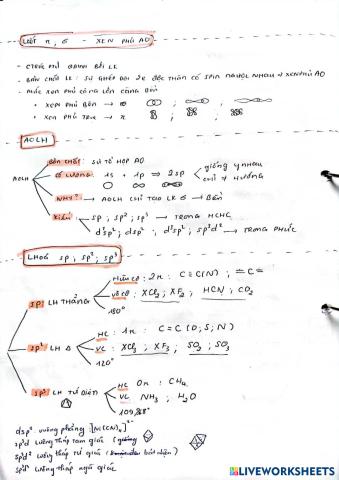 LKHT π, σ - XEN PHỦ AO
- CTCPT chỉ đành bởi LK
- BẢN CHẤT LK: SỰ GHÉP ĐÔI 2e ĐỘC THÂN CÓ SPIN NGƯỢC NHAU → XEN PHỦ AO
- MỨC XEN PHỦ CÀNG LỚN CÀNG BỀN
• XEN PHỦ BÊN → π ; ;
• XEN PHỦ TRỤC → ; ;
AOLH
BẢN CHẤT: SỰ TỔ HỢP AO
NĂNG LƯỢNG: 1s + 1p ⇒ 2sp
giống y nhau
chỉ ≠ hướng
AOLH
WHY? → AOLH CHỈ TẠO LK σ → BỀN
KIỂU: sp, sp², sp³ → TRONG HCHC
d²sp³, dsp², d³sp³, sp³d² → TRONG PHỨC
LHOÁ SP, SP², SP³
HỮU CƠ: 2π: C≡C(N) ; =C=
SP LH THẲNG
VÔ CƠ: XCl₂, XF₂, HCN, CO₂
180°
HC: 1π: C=C (O; S; N)
SP² LH Δ
VC: XCl₃, XF₃, SO₂, SO₃
120°
SP³ LH TỨ DIỆN
HC 0π: CH₄
VC: NH₃, H₂O
109,28°
dsp² vuông phẳng: [Ni(CN)₄]²⁻
sp³d lưỡng tháp tam giác
sp³d² lưỡng tháp tứ giác
sp³d³ lưỡng tháp ngũ giác
LIVEWORKSHEETS